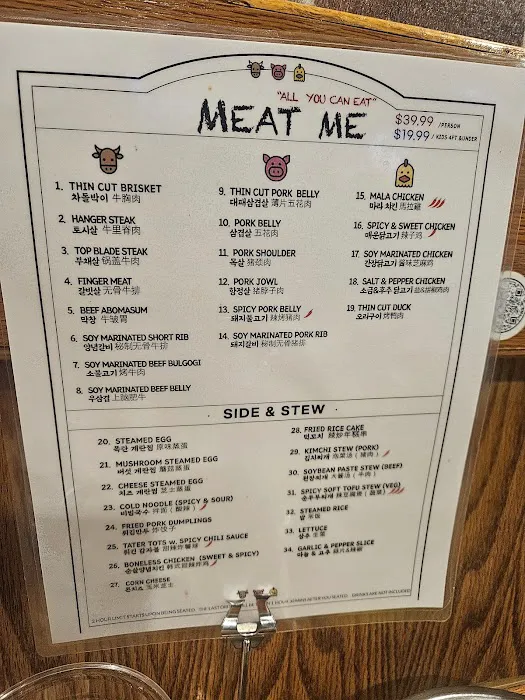 "ALL YOU CAN EAT"
MEAT ME
$39.99 /PERSON
$19.99 / KIDS 4FT &UNDER
1. THIN CUT BRISKET
차돌박이 牛胸肉
2. HANGER STEAK
토시살 牛里脊肉
3. TOP BLADE STEAK
부채살 锅盖牛肉
4. FINGER MEAT
갈빗살 无骨牛排
5. BEEF ABOMASUM
막창 牛皱胃
6. SOY MARINATED SHORT RIB
양념갈비 秘制无骨牛排
7. SOY MARINATED BEEF BULGOGI
소불고기 烤牛肉
8. SOY MARINATED BEEF BELLY
우삼겹 上脑肥牛
9. THIN CUT PORK BELLY
대패삼겹살 薄片五花肉
10. PORK BELLY
삼겹살 五花肉
11. PORK SHOULDER
목살 猪颈肉
12. PORK JOWL
항정살 猪脖子肉
13. SPICY PORK BELLY
돼지불고기 辣烤猪肉
14. SOY MARINATED PORK RIB
돼지갈비 秘制无骨猪排
15. MALA CHICKEN
마라 치킨 馬拉雞
16. SPICY & SWEET CHICKEN
매운닭고기 辣子鸡
17. SOY MARINATED CHICKEN
간장닭고기 酱味芝麻鸡
18. SALT & PEPPER CHICKEN
소금&후추 닭고기 盐&胡椒鸡肉
19. THIN CUT DUCK
오리구이 烤鸭肉
SIDE & STEW
20. STEAMED EGG
뚝란 계란찜 原味蒸蛋
21. MUSHROOM STEAMED EGG
버섯 계란찜 蘑菇蒸蛋
22. CHEESE STEAMED EGG
치즈 계란찜 芝士蒸蛋
23. COLD NOODLE (SPICY & SOUR)
비빔국수 拌面 (酸辣)
24. FRIED PORK DUMPLINGS
튀김만두 炸饺子
25. TATER TOTS w. SPICY CHILI SAUCE
튀긴 감자볼
26. BONELESS CHICKEN (SWEET & SPICY)
순살양념치킨 韩式甜辣炸鸡
27. CORN CHEESE
콘치즈 玉米芝士
28. FRIED RICE CAKE
떡꼬치 辣炒年糕串
29. KIMCHI STEW (PORK)
김치찌개 泡菜汤 (猪肉)
30. SOYBEAN PASTE STEW (BEEF)
된장찌개 大酱汤 (牛肉)
31. SPICY SOFT TOFU STEW (VEG)
순두부찌개 辣豆腐煲 (蔬菜)
32. STEAMED RICE
밥 米饭
33. LETTUCE
상추 生菜
34. GARLIC & PEPPER SLICE
마늘 & 고추 蒜片&辣椒
2 HOUR LIMIT STARTS UPON BEING SEATED. THE LAST ORDER 1 HOUR 30MINS AFTER YOU SEATED. DRINKS ARE NOT INCLUDED